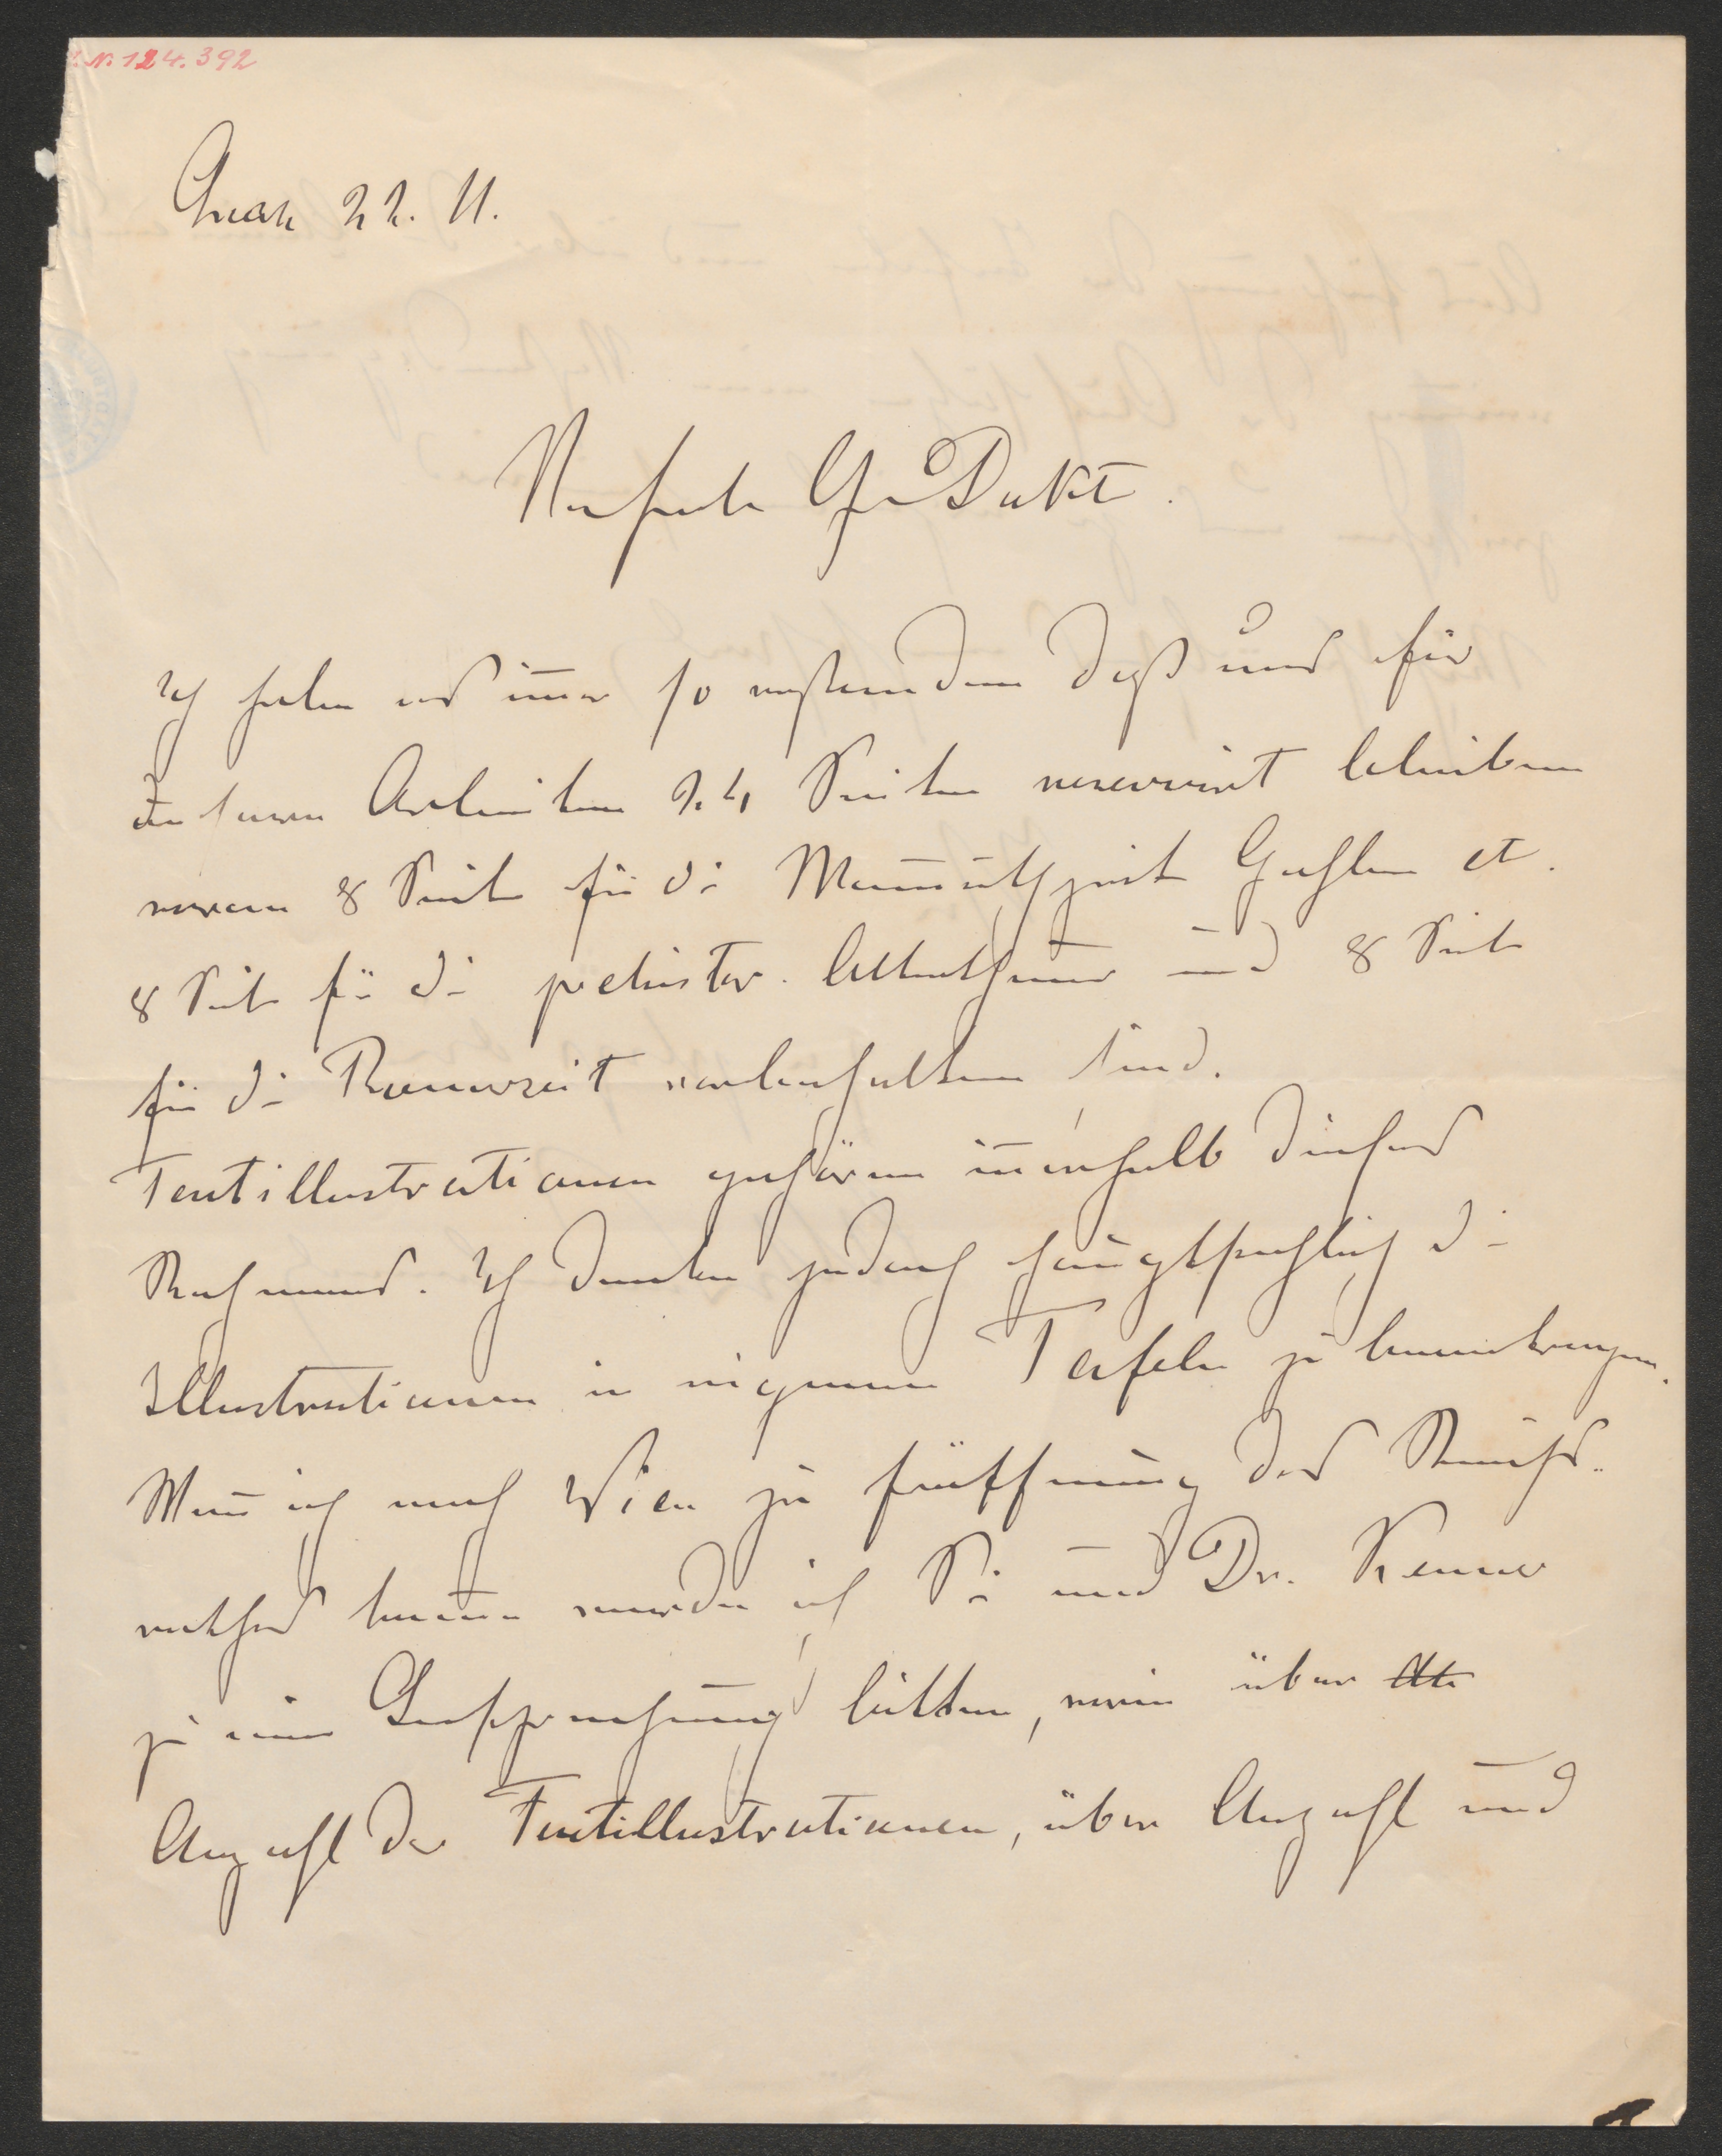 I. N. 124.392
Graz 22. 11.
Verehrter Herr Doktor.
Ich habe es immer so verstanden daß uns für
unseren Arbeiten 24 Seiten reservirt bleiben
wovon 8 Seiten für die Mammuthzeit Höhlen etc.
8 Seiten für die prehistor. Alterthümer und 8 Seiten
für die Roemerzeit vorbehalten sind.
Textillustrationen gehören innerhalb dieses
Rahmens. Ich denke jedoch hauptsächlich die
Illustrationen in eigenen Tafeln zu
Wenn ich nach Wien zur Eröffnung des Reichs-
rathes komme werde ich Sie und Dr. Kenner
zu einer Besprechung bitten, worin über
Anzahl der Textillustrationen, über Anzahl und